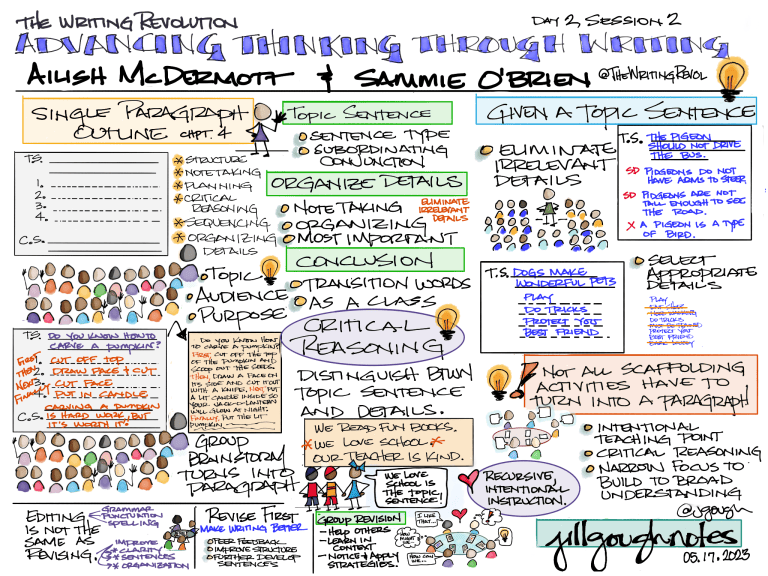 THE WRITING REVOLUTION
DAY 2, SESSION 2
ADVANCING THINKING THROUGH WRITING
AILISH MCDERMOTT & SAMMIE O'BRIEN @THEWRITINGREVOL
SINGLE PARAGRAPH
OUTLINE CHPT. 4
T.S.
1.
2.
3.
4.
C.S.
* STRUCTURE
* NOTETAKING
* PLANNING
* CRITICAL
REASONING
* SEQUENCING
* ORGANIZING
DETAILS
TOPIC
AUDIENCE
PURPOSE
T.S. DO YOU KNOW HOW TO
CARVE A PUMPKIN?
FIRST 1. CUT OFF TOP
THEN 2. DRAW FACE + CUT
NEXT 3. CUT FACE
FINALLY 4. PUT IN CANDLE
CARVING A PUMPKIN
C.S. IS HARD WORK, BUT
IT'S WORTH IT'S
DO YOU KNOW HOW
TO CARVE A PUMPKIN?
FIRST CUT OFF THE TOP
OF THE PUMPKIN AND
SCOOP OUT THE SEEDS.
THEN, DRAW A FACE ON
ITS SIDE AND CUT IT OUT
WITH A KNIFE. NEXT PUT
A LIT CANDLE INSIDE SO
YOUR JACK-O-LANTERN
WILL GLOW AT NIGHT.
FINALLY, PUT THE LIT
PUMPKIN
GROUP
BRAINSTORM
TURNS INTO
PARAGRAPH
EDITING
IS NOT THE
SAME AS
REVISING.
GRAMMAR
PUNCTUATION
SPELLING
IMPROVE
CLARITY
SENTENCES
ORGANIZATION
REVISE FIRST
MAKE WRITING BETTER
PEER FEEDBACK
IMPROVE STRUCTURE
FURTHER DEVELOP
SENTENCES
TOPIC SENTENCE
SENTENCE TYPE
SUBORDINATING
CONJUNCTION
ORGANIZE DETAILS
NOTE TAKING
ORGANIZING
MOST IMPORTANT
ELIMINATE
IRRELEVANT
DETAILS
CONCLUSION
TRANSITION WORDS
AS A CLASS
CRITICAL
REASONING
DISTINGUISH BTWN
TOPIC SENTENCE
AND DETAILS.
WE READ FUN BOOKS.
* WE LOVE SCHOOL *
OUR TEACHER IS KIND.
WE LOVE
SCHOOL IS
THE TOPIC
SENTENCE!
RECURSIVE,
INTENTIONAL
INSTRUCTION.
GROUP REVISION
- HELP OTHERS
- LEARN IN
CONTEXT
- NOTICE + APPLY
STRATEGIES.
I LIKE
THAT...
HOW CAN
WE...
GIVEN A TOPIC SENTENCE
ELIMINATE
IRRELEVANT
DETAILS
T.S. THE PIGEON
SHOULD NOT DRIVE
THE BUS.
SD PIDGEONS DO NOT
HAVE ARMS TO STEER.
SD PIDGEONS ARE NOT
TALL ENOUGH TO SEE
THE ROAD.
X A PIGEON IS A TYPE
OF BIRD.
T.S. DOGS MAKE
WONDERFUL PETS
PLAY
DO TRICKS
PROTECT YOU
BEST FRIEND
SELECT
APPROPRIATE
DETAILS
PLAY
DO TRICKS
PROTECT YOU
BEST FRIEND
! NOT ALL SCAFFOLDING
ACTIVITIES HAVE TO
TURN INTO A PARAGRAPH
INTENTIONAL
TEACHING POINT
CRITICAL REASONING
NARROW FOCUS TO
BUILD TO BROAD
UNDERSTANDING
@jgough
jillgoughnotes
05.17.2023